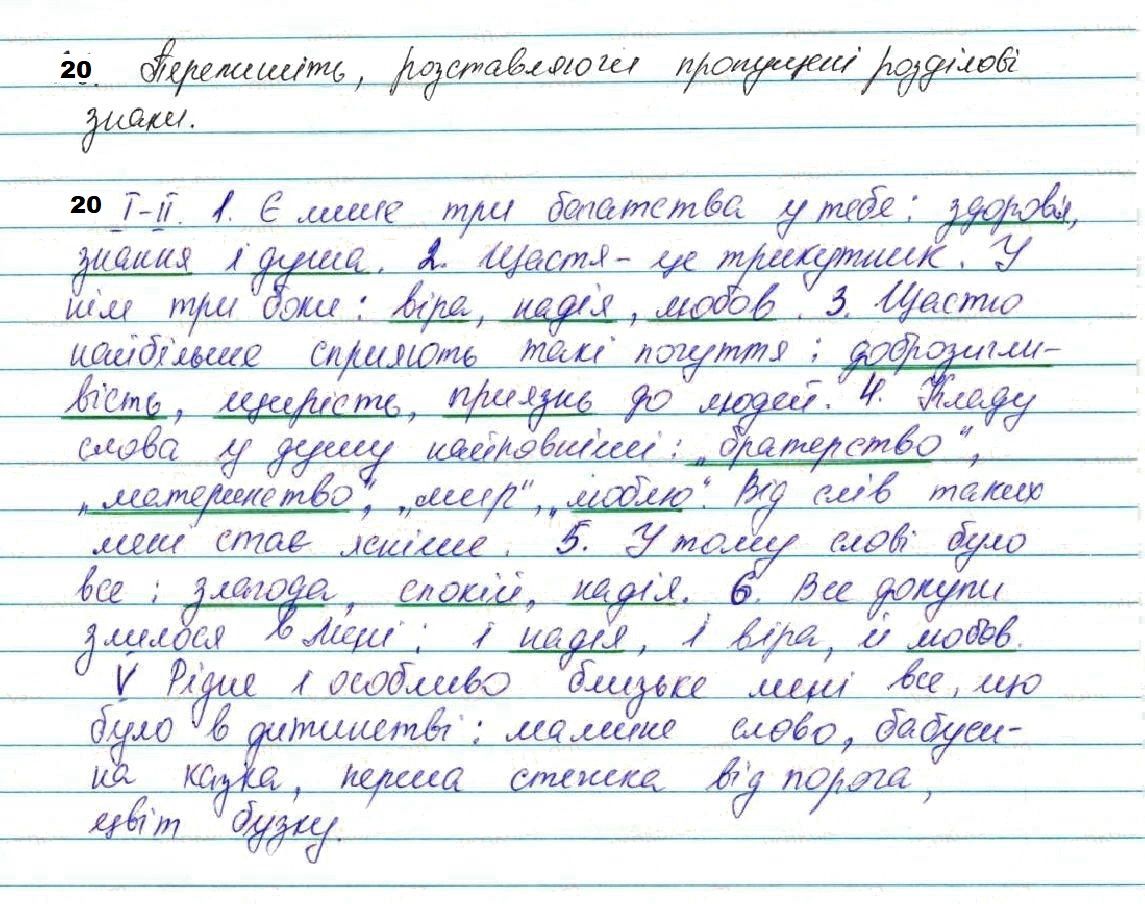 20. Перепишіть, розставляючи пропущені розділові
знаки.
20 І-ІІ. 1. Є лише три багатства у тебе: здоров'я,
знання і душа. 2. Щастя - це трикутник. У
нім три боки: віра, надія, любов. 3. Щастю
найбільше сприяють такі почуття: доброзичли-
вість, щирість, приязнь до людей. 4. Кладу
слова у душу найповніші: „братерство",
„материнство", „мир", „люблю". Від слів таких
мені стає ясніше. 5. У тому слові було
все: злагода, спокій, надія. 6. Все докупи
злилося в мені: і надія, і віра, й любов.
V Рідне і особливо близьке мені все, що
було в дитинстві: мамине слово, бабуси-
на казка, перша стежка від порога,
цвіт бузку.